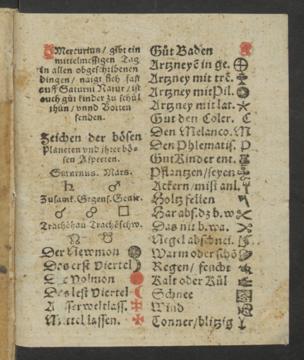 Mercurius / gibt ein
mittelmessigen Tag
in allen obgeschribenen
dingen / naigt sich fast
auff Saturni Natur / ist
auch gůt kinder zu schůl
thůn / vnnd Botten
senden.
Zeichen der bösen
Planeten vnd ihrer bö-
sen Aspecten.
Saturnus. Mars.
♄ ♂
Zusamt. Gegens. Geuie.
☌ ☍ □
Trachẽhau Trachẽschw.
☊ ☋
Der Newmon
Das erst Viertel
Der Volmon
Das lest Viertel
Aderlassen.
Mittel lassen.
Gůt Baden
Artzneyẽ in ge.
Artzney mit trẽ.
Artzney mit Pil.
Artzney mit lat.
Gut den Coler. C
Den Melanco. M
Den Phlematis. P
Gut Kinder ent.
Pflantzen / seyen
Ackern / mist anl.
Holtz fellen
Har absdz b. w.
Das nit b. wa.
Negel abschnei.
Warm oder schö
Regen / feucht
Kalt oder Kül
Schnee
Wind
Donner / blitzig